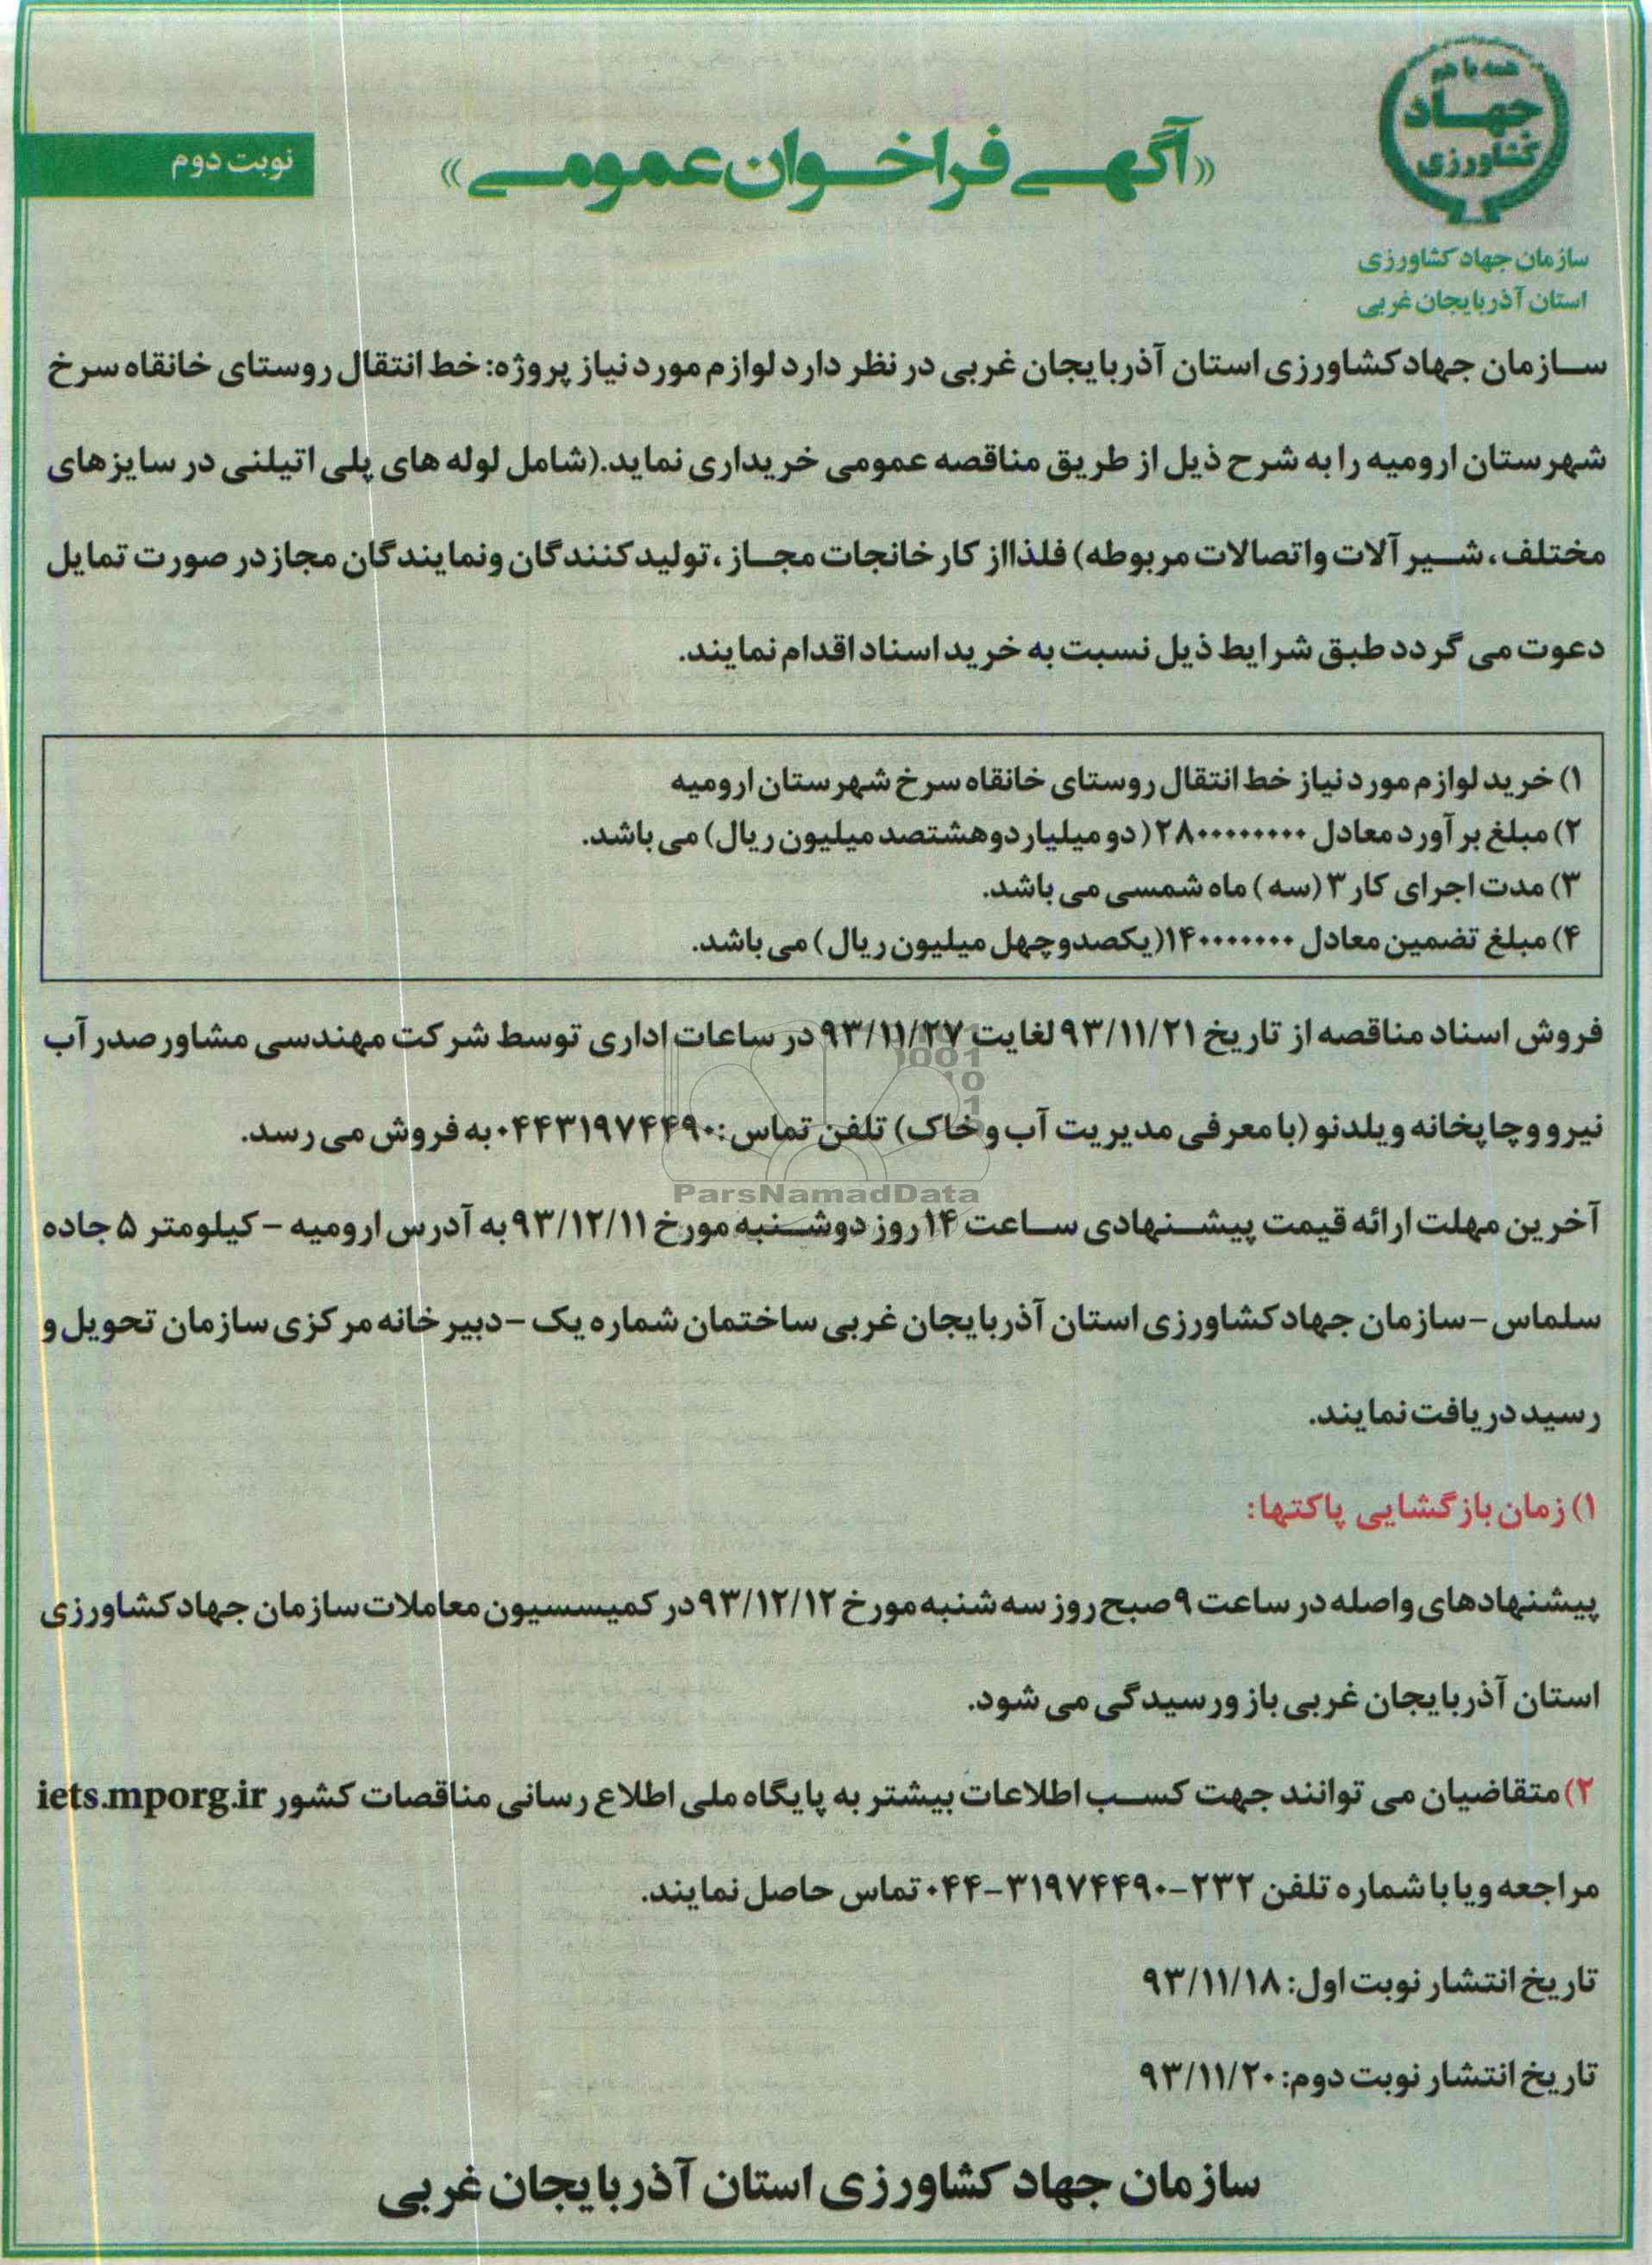 همه با هم
جهاد
کشاورزی
سازمان جهاد کشاورزی
استان آذربایجان غربی
«آگهی فراخوان عمومی»
نوبت دوم
سازمان جهاد کشاورزی استان آذربایجان غربی در نظر دارد لوازم مورد نیاز پروژه: خط انتقال روستای خانقاه سرخ
شهرستان ارومیه را به شرح ذیل از طریق مناقصه عمومی خریداری نماید.(شامل لوله های پلی اتیلنی در سایزهای
مختلف، شیر آلات و اتصالات مربوطه) فلذااز کارخانجات مجاز، تولید کنندگان ونمایندگان مجاز در صورت تمایل
دعوت می گردد طبق شرایط ذیل نسبت به خرید اسناد اقدام نمایند.
۱) خرید لوازم مورد نیاز خط انتقال روستای خانقاه سرخ شهرستان ارومیه
۲) مبلغ بر آورد معادل ۲۸۰۰۰۰۰۰۰۰۰ (دو میلیارد وهشتصد میلیون ریال) می باشد.
۳) مدت اجرای کار ۳ (سه) ماه شمسی می باشد.
۴) مبلغ تضمین معادل ۱۴۰۰۰۰۰۰۰ (یکصدوچهل میلیون ریال) می باشد.
فروش اسناد مناقصه از تاریخ ۹۳/۱۱/۲۱ لغایت ۹۳/۱۱/۲۷ در ساعات اداری توسط شرکت مهندسی مشاور صدر آب
نیرو وچاپخانه ویلدنو (با معرفی مدیریت آب و خاک) تلفن تماس: ۰۴۴۳۱۹۷۴۴۹۰ به فروش می رسد.
ParsNamadData
آخرین مهلت ارائه قیمت پیشنهادی ساعت ۱۴ روز دوشنبه مورخ ۹۳/۱۲/۱۱ به آدرس ارومیه – کیلومتر ۵ جاده
سلماس – سازمان جهاد کشاورزی استان آذربایجان غربی ساختمان شماره یک – دبیرخانه مرکزی سازمان تحویل و
رسید دریافت نمایند.
۱) زمان بازگشایی پاکتها:
پیشنهادهای واصله در ساعت ۹ صبح روز سه شنبه مورخ ۹۳/۱۲/۱۲ در کمیسسیون معاملات سازمان جهاد کشاورزی
استان آذربایجان غربی باز ورسیدگی می شود.
۲) متقاضیان می توانند جهت کسب اطلاعات بیشتر به پایگاه ملی اطلاع رسانی مناقصات کشور iets.mporg.ir
مراجعه ویا با شماره تلفن ۲۳۲-۳۱۹۷۴۴۹۰-۰۴۴ تماس حاصل نمایند.
تاریخ انتشار نوبت اول: ۹۳/۱۱/۱۸
تاریخ انتشار نوبت دوم: ۹۳/۱۱/۲۰
سازمان جهاد کشاورزی استان آذربایجان غربی